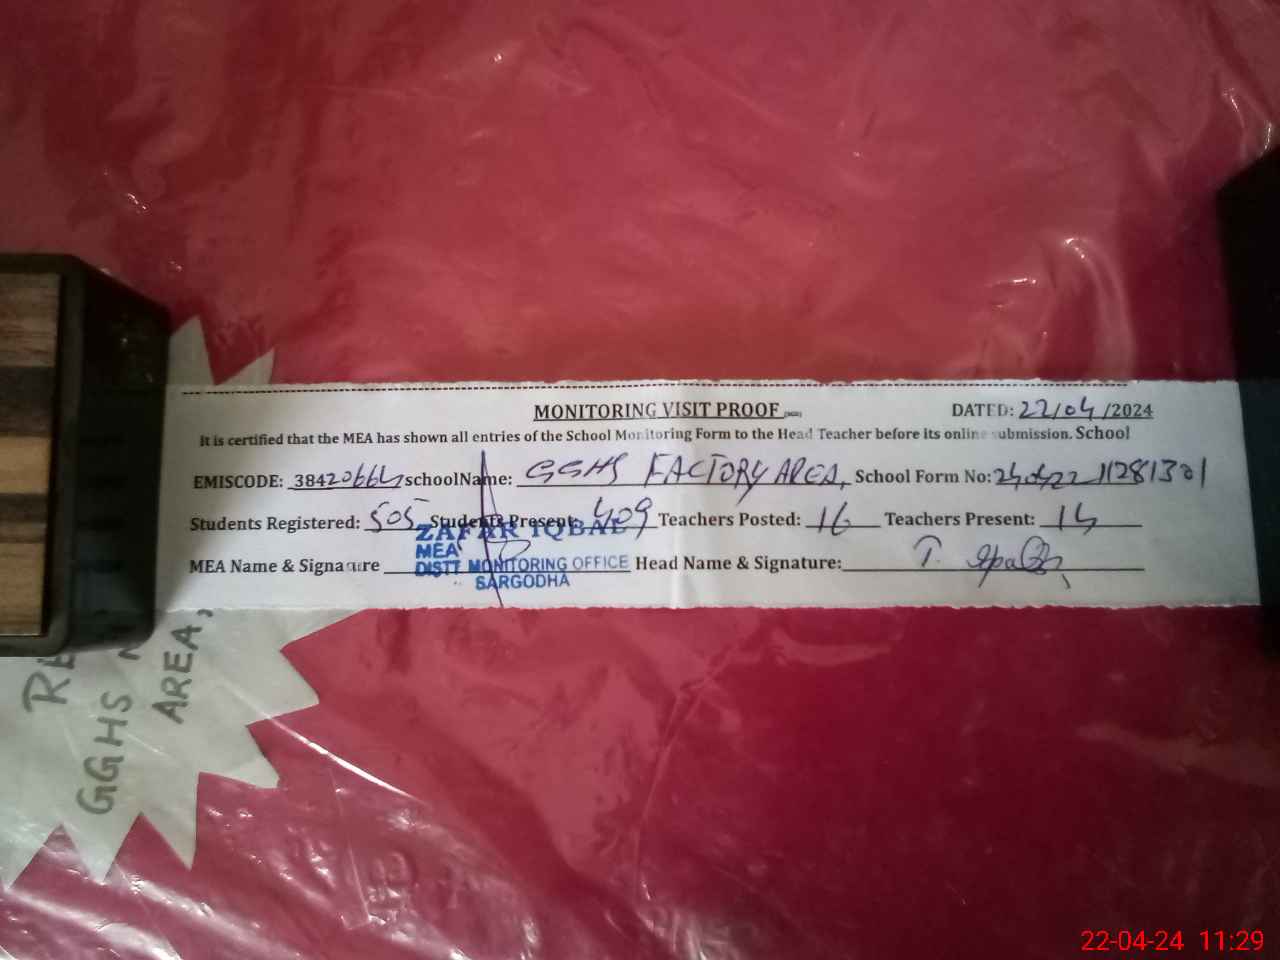 MONITORING VISIT PROOF
DATED: 22/04/2024
It is certified that the MEA has shown all entries of the School Monitoring Form to the Head Teacher before its online submission. School
EMISCODE: 38420664 schoolName: GGHS FACTORY AREA, School Form No:
Students Registered: 505 Students Present: 409 Teachers Posted: 16 Teachers Present: 14
ZAFAR IQBAL
MEA
MEA Name & Signature Head Name & Signature: T.
DISTT MONITORING OFFICE
SARGODHA
GGHS
AREA,
22-04-24 11:29